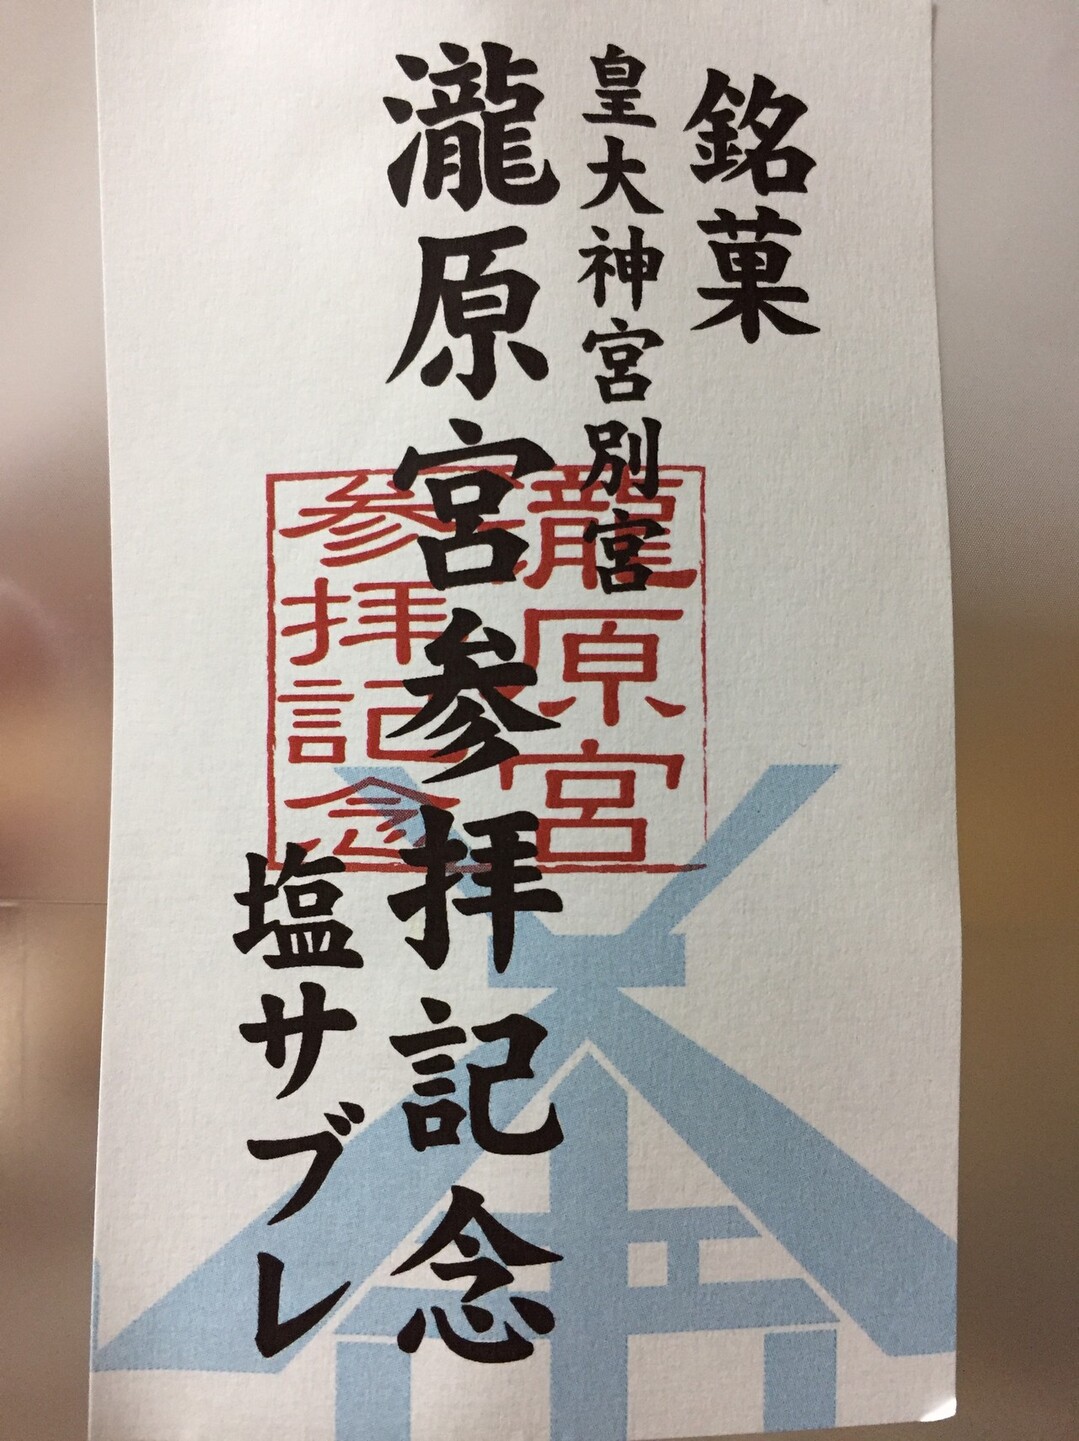 銘菓
皇大神宮別宮
瀧原宮参拝記念
塩サブレ
瀧原宮
参拝記念